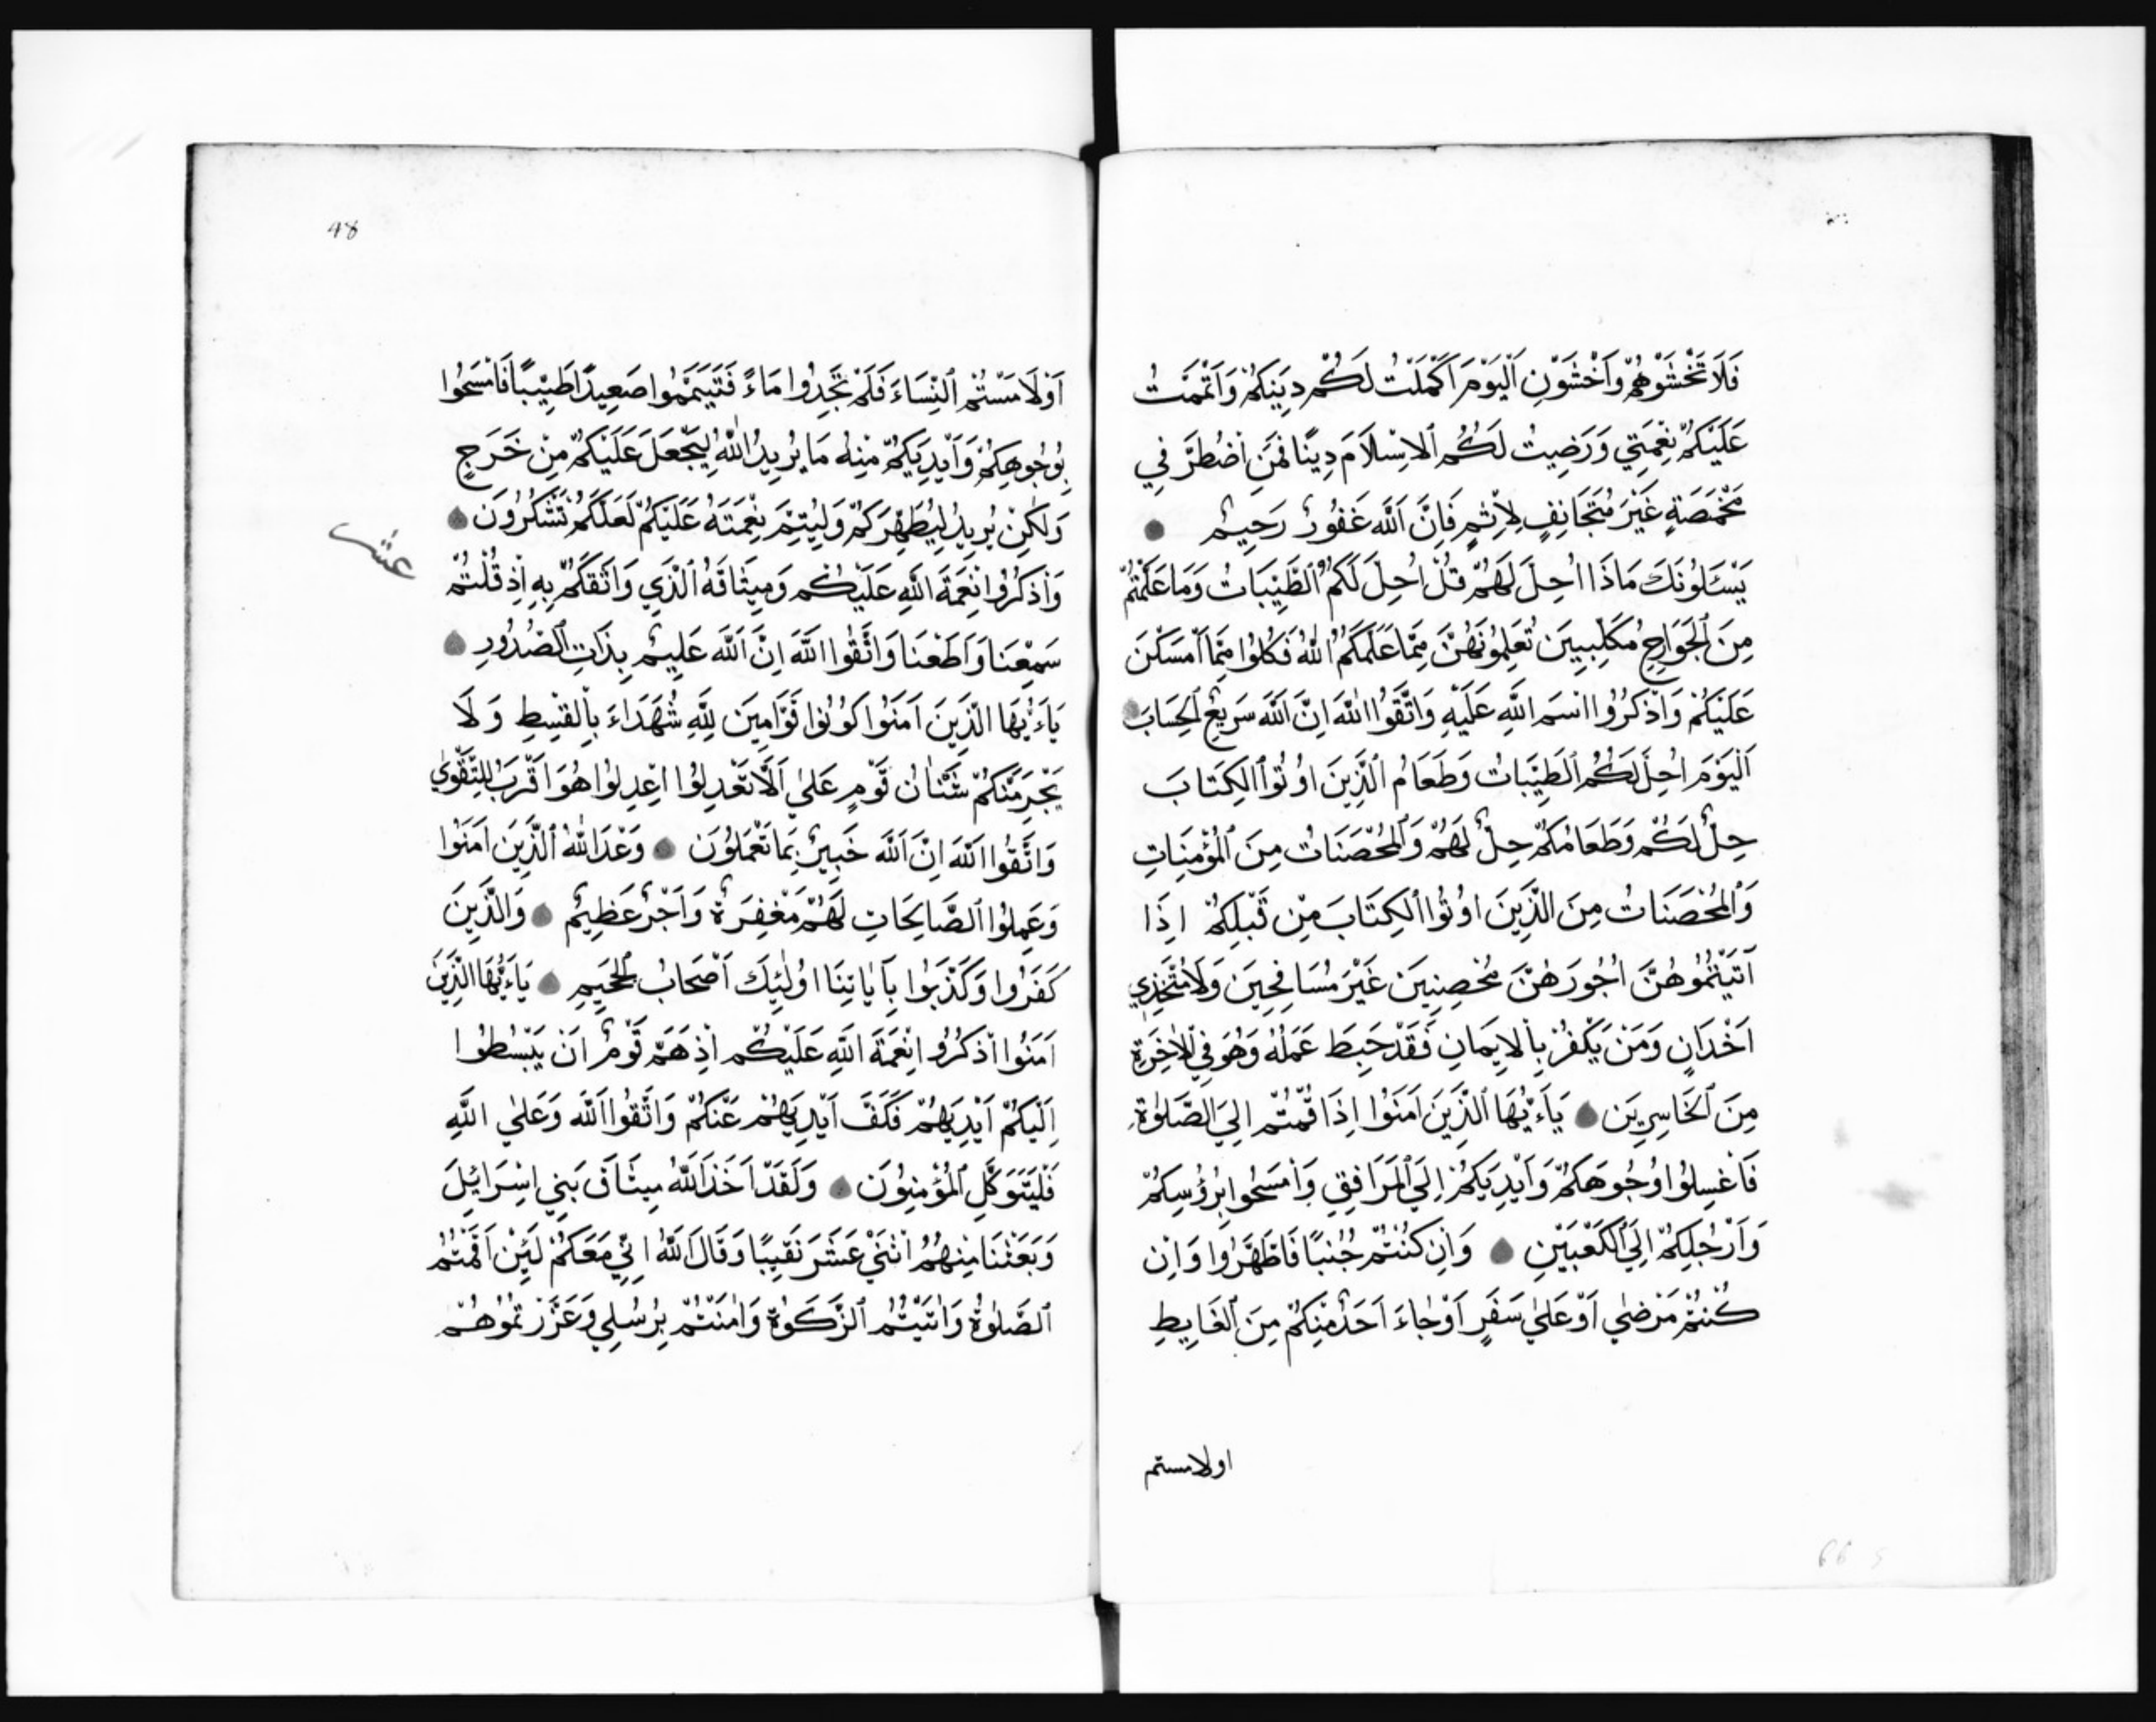 فَلَا تَخْشَوْهُمْ وَاَخْشَوْنِ اَلْيَوْمَ اَكْمَلْتُ لَكُمْ دِينَكُمْ وَاَتْمَمْتُ
عَلَيْكُمْ نِعْمَتِي وَرَضِيتُ لَكُمُ الْاِسْلَامَ دِينًا فَمَنِ اضْطُرَّ فِي
مَخْمَصَةٍ غَيْرَ مُتَجَانِفٍ لِاِثْمٍ فَاِنَّ اَللَّهَ غَفُورٌ رَحِيمٌ
يَسْـَٔلُونَكَ مَاذَا اُحِلَّ لَهُمْ قُلْ اُحِلَّ لَكُمُ الطَّيِّبَاتُ وَمَا عَلَّمْتُمْ
مِنَ الْجَوَارِحِ مُكَلِّبِينَ تُعَلِّمُونَهُنَّ مِمَّا عَلَّمَكُمُ اللَّهُ فَكُلُوا مِمَّا اَمْسَكْنَ
عَلَيْكُمْ وَاذْكُرُوا اسْمَ اللَّهِ عَلَيْهِ وَاتَّقُوا اللَّهَ اِنَّ اَللَّهَ سَرِيعُ الْحِسَابِ
اَلْيَوْمَ اُحِلَّ لَكُمُ الطَّيِّبَاتُ وَطَعَامُ الَّذِينَ اوُتُوا الْكِتَابَ
حِلٌّ لَكُمْ وَطَعَامُكُمْ حِلٌّ لَهُمْ وَالْمُحْصَنَاتُ مِنَ الْمُؤْمِنَاتِ
وَالْمُحْصَنَاتُ مِنَ الَّذِينَ اوُتُوا الْكِتَابَ مِنْ قَبْلِكُمْ اِذَا
آتَيْتُمُوهُنَّ اُجُورَهُنَّ مُحْصِنِينَ غَيْرَ مُسَافِحِينَ وَلَا مُتَّخِذِي
اَخْدَانٍ وَمَنْ يَكْفُرْ بِالْاِيمَانِ فَقَدْ حَبِطَ عَمَلُهُ وَهُوَ فِي الْاٰخِرَةِ
مِنَ الْخَاسِرِينَ يَاَءَيُّهَا الَّذِينَ اَمَنُوا اِذَا قُمْتُمْ اِلَي الصَّلٰوةِ
فَاغْسِلُوا وُجُوهَكُمْ وَاَيْدِيَكُمْ اِلَي الْمَرَافِقِ وَامْسَحُوا بِرُؤُسِكُمْ
وَاَرْجُلِكُمْ اِلَي الْكَعْبَيْنِ وَاِنْ كُنْتُمْ جُنُبًا فَاطَّهَّرُوا وَاِنْ
كُنْتُمْ مَرْضٰي اَوْ عَلٰي سَفَرٍ اَوْ جَاءَ اَحَدٌ مِنْكُمْ مِنَ الْغَايِطِ
اولامستم
48
اَوْ لَامَسْتُمُ النِّسَاءَ فَلَمْ تَجِدُوا مَاءً فَتَيَمَّمُوا صَعِيدًا طَيِّبًا فَامْسَحُوا
بِوُجُوهِكُمْ وَاَيْدِيكُمْ مِنْهُ مَا يُرِيدُ اللَّهُ لِيَجْعَلَ عَلَيْكُمْ مِنْ حَرَجٍ
وَلٰكِنْ يُرِيدُ لِيُطَهِّرَكُمْ وَلِيُتِمَّ نِعْمَتَهُ عَلَيْكُمْ لَعَلَّكُمْ تَشْكُرُونَ
عشر
وَاذْكُرُوا نِعْمَةَ اللَّهِ عَلَيْكُمْ وَمِيثَاقَهُ الَّذِي وَاثَقَكُمْ بِهِ اِذْ قُلْتُمْ
سَمِعْنَا وَاَطَعْنَا وَاتَّقُوا اللَّهَ اِنَّ اَللَّهَ عَلِيمٌ بِذَاتِ الصُّدُورِ
يَاَءَيُّهَا الَّذِينَ اَمَنُوا كُونُوا قَوَّامِينَ لِلَّهِ شُهَدَاءَ بِالْقِسْطِ وَلَا
يَجْرِمَنَّكُمْ شَنَاٰنُ قَوْمٍ عَلٰي اَلَّا تَعْدِلُوا اعْدِلُوا هُوَ اَقْرَبُ لِلتَّقْوٰي
وَاتَّقُوا اللَّهَ اِنَّ اَللَّهَ خَبِيرٌ بِمَا تَعْمَلُونَ وَعَدَ اللَّهُ الَّذِينَ اَمَنُوا
وَعَمِلُوا الصَّالِحَاتِ لَهُمْ مَغْفِرَةٌ وَاَجْرٌ عَظِيمٌ وَالَّذِينَ
كَفَرُوا وَكَذَّبُوا بِآيَاتِنَا اوُلٰئِكَ اَصْحَابُ الْجَحِيمِ يَاَءَيُّهَا الَّذِينَ
اَمَنُوا اذْكُرُوا نِعْمَةَ اللَّهِ عَلَيْكُمْ اِذْ هَمَّ قَوْمٌ اَنْ يَبْسُطُوا
اِلَيْكُمْ اَيْدِيَهُمْ فَكَفَّ اَيْدِيَهُمْ عَنْكُمْ وَاتَّقُوا اللَّهَ وَعَلٰي اللَّهِ
فَلْيَتَوَكَّلِ الْمُؤْمِنُونَ وَلَقَدْ اَخَذَ اللَّهُ مِيثَاقَ بَنِي اِسْرَائِلَ
وَبَعَثْنَا مِنْهُمُ اثْنَيْ عَشَرَ نَقِيبًا وَقَالَ اللَّهُ اِنِّي مَعَكُمْ لَئِنْ اَقَمْتُمُ
الصَّلٰوةَ وَاٰتَيْتُمُ الزَّكَوٰةَ وَاٰمَنْتُمْ بِرُسُلِي وَعَزَّرْتُمُوهُمْ